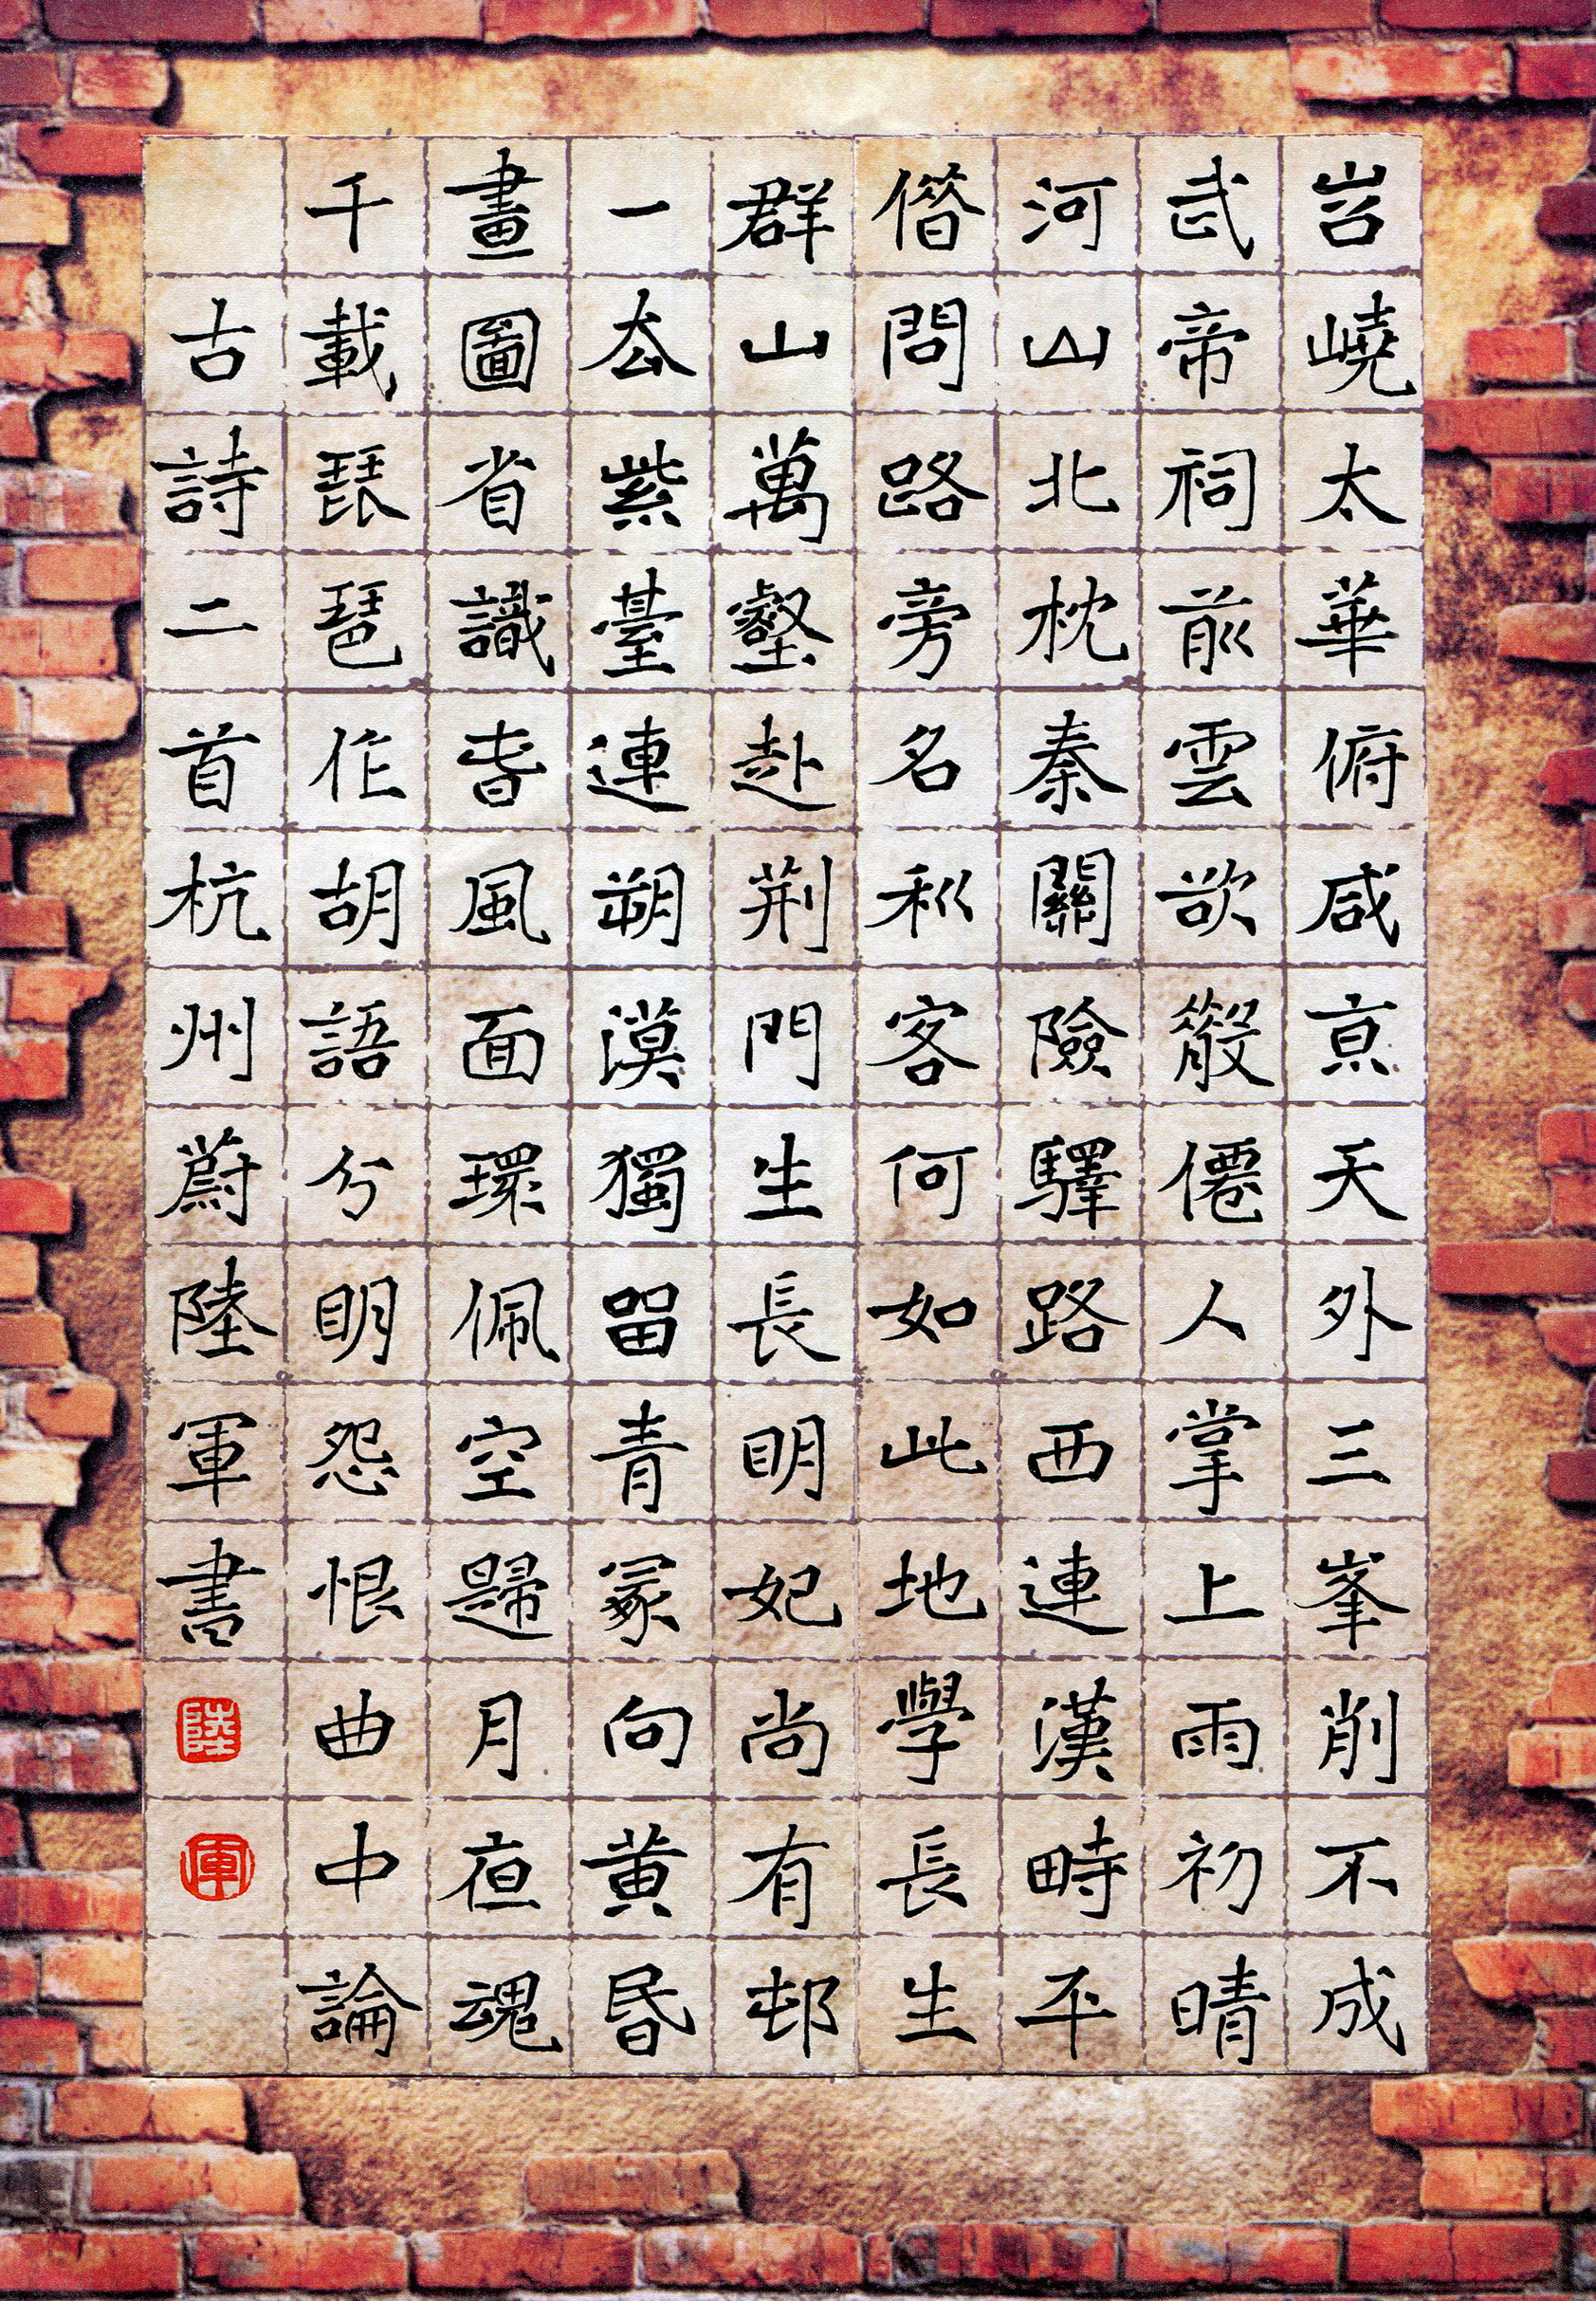 岧嶢太華俯咸京天外三峯削不成
武帝祠前雲欲散僊人掌上雨初晴
河山北枕秦關險驛路西連漢畤平
借問路旁名利客何如此地學長生
群山萬壑赴荆門生長明妃尚有邨
一去紫臺連朔漠獨留青冢向黄昏
畫圖省識春風面環佩空歸月夜魂
千載琵琶作胡語分明怨恨曲中論
古詩二首杭州蔚陸軍書
陸
軍